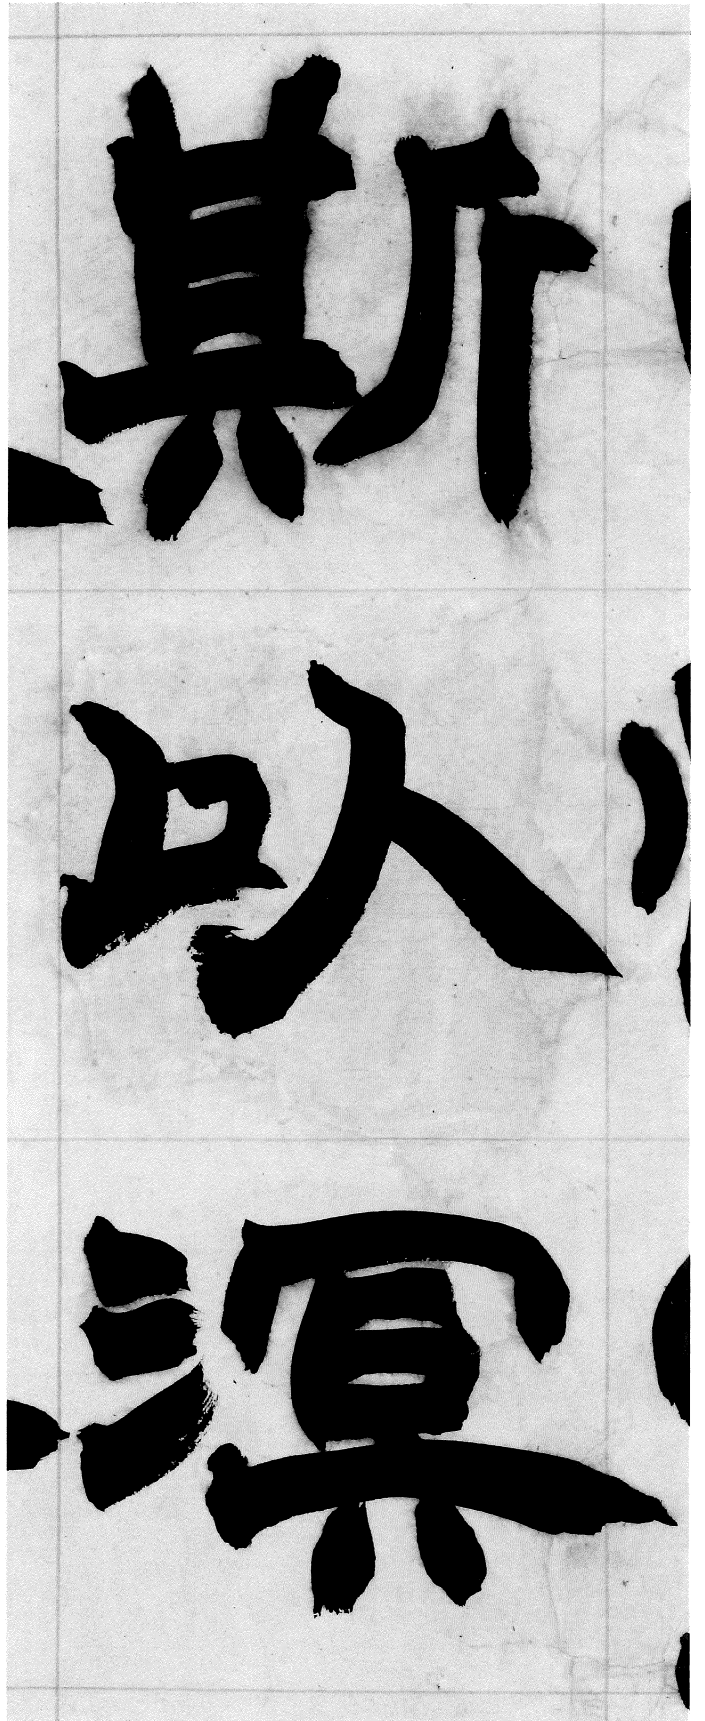 斯以溟